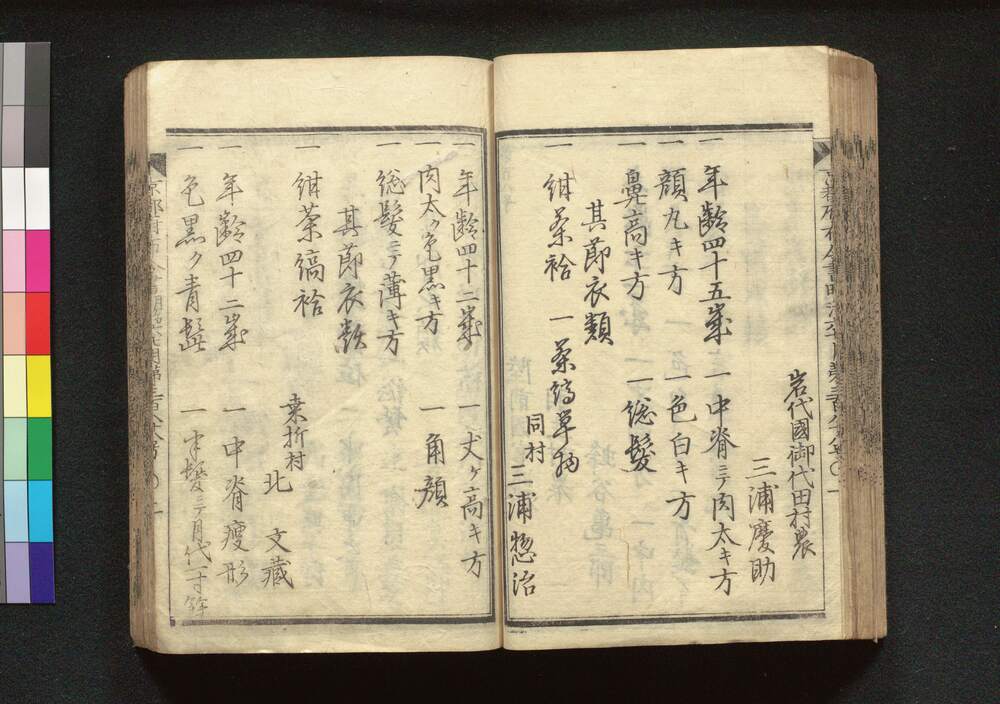 岩代國御代田村農
三浦慶助
一 年齢四十五歳 一 中脊ニテ肉太キ方
一 顔丸キ方 一 色白キ方
一 鼻高キ方 一 総髪
其節衣類
一 紺茶袷 一 茶縞単物
同村
三浦惣治
一 年齢四十二歳 一 丈ヶ高キ方
一 肉太ク色黒キ方 一 角顔
一 総髪ニテ薄キ方
其節衣類
一 紺茶縞袷
桑折村
北 文藏
一 年齢四十二歳 一 中脊痩形
一 色黒ク青髭 一 半髪ニテ月代一寸餘